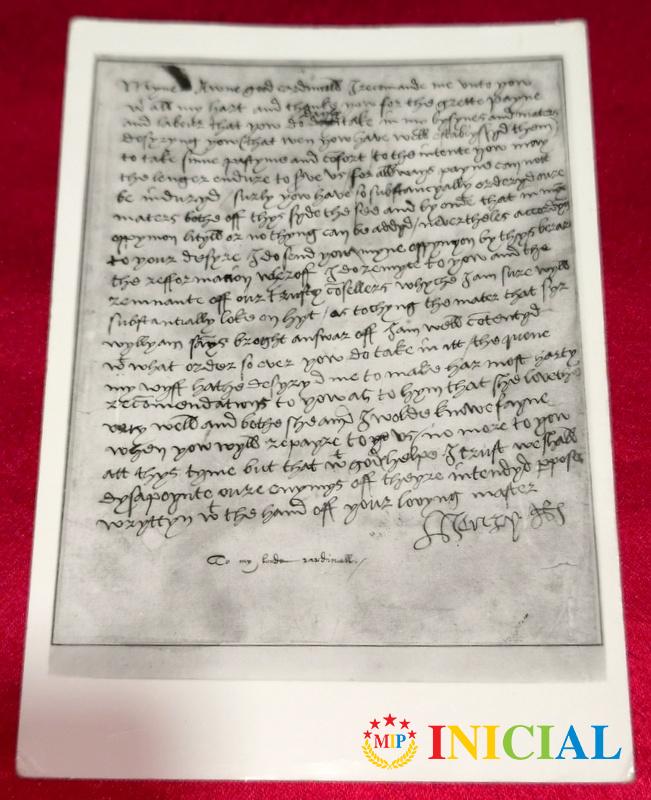 Myne Awne good cardinall I recomande me unto yow
wt all my hart and thanke yow for the grette payne
and labour that yow do dayly take in my bysynes and maters
desyryng yow that wen yow have well establyssyd them
to take summe pastyme and cofort to the intente yow may
the lenger endure to serve us for allways payne can nott
be induryd / surly yow have so substancyally orderyd oure
maters bothe off thys syde the see and by onde that in myne
oppynion lityll or no thyng can be addyd / nevertheles accordyng
to your desyre I do send yow myne oppynyon by thys berar
the refformation wheroff I do remyte to yow and the
remnante off our trusty cosellers whyche I am sure wyll
substantially loke on hyt / as tochyng the mater that syr
wyllyam says broght answar off I am well cotentyd
wt what order so ever yow do take in itt / the quene
my wyff hathe desyryd me to make har most harty
recomendations to yow as to hym that she lovethe
very well and bothe she and I wolde knowe fayne
when yow wyll repayre to us / no more to yow
att thys tyme but that wt gods helpe I trust we shall
dysapoynte oure enymys off theyre intendyd pposse
wryttyn wt the hand off your lovyng master
Henry R
To my lorde cardinall /
MIP INICIAL